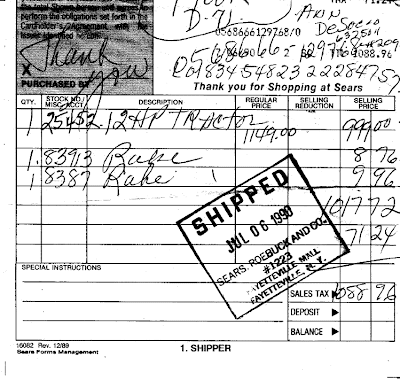 the total shown hereon and agrees to
perform the obligations set forth in the
Cardholder's Agreement with the
Issuer identified
Thank you
X
PURCHASED BY
D.U.
Ann
DeSpero
0568666129768/0
1088.76
01834548232228475
Thank you for Shopping at Sears
QTY. STOCK NO./ MISC. ACCT. DESCRIPTION REGULAR PRICE SELLING REDUCTION SELLING PRICE
1 25452 12HP TRActor 1149.00 999.00
1 83913 Rake 8 76
1 8387 Rake 1 9 96
1017 72
71 24
SHIPPED
JUL 06 1990
SEARS, ROEBUCK AND CO.
#1223
FAYETTEVILLE MALL
FAYETTEVILLE, N.Y.
SPECIAL INSTRUCTIONS
SALES TAX 1088 96
DEPOSIT
BALANCE
16082 Rev. 12/89
Sears Forms Management
1. SHIPPER